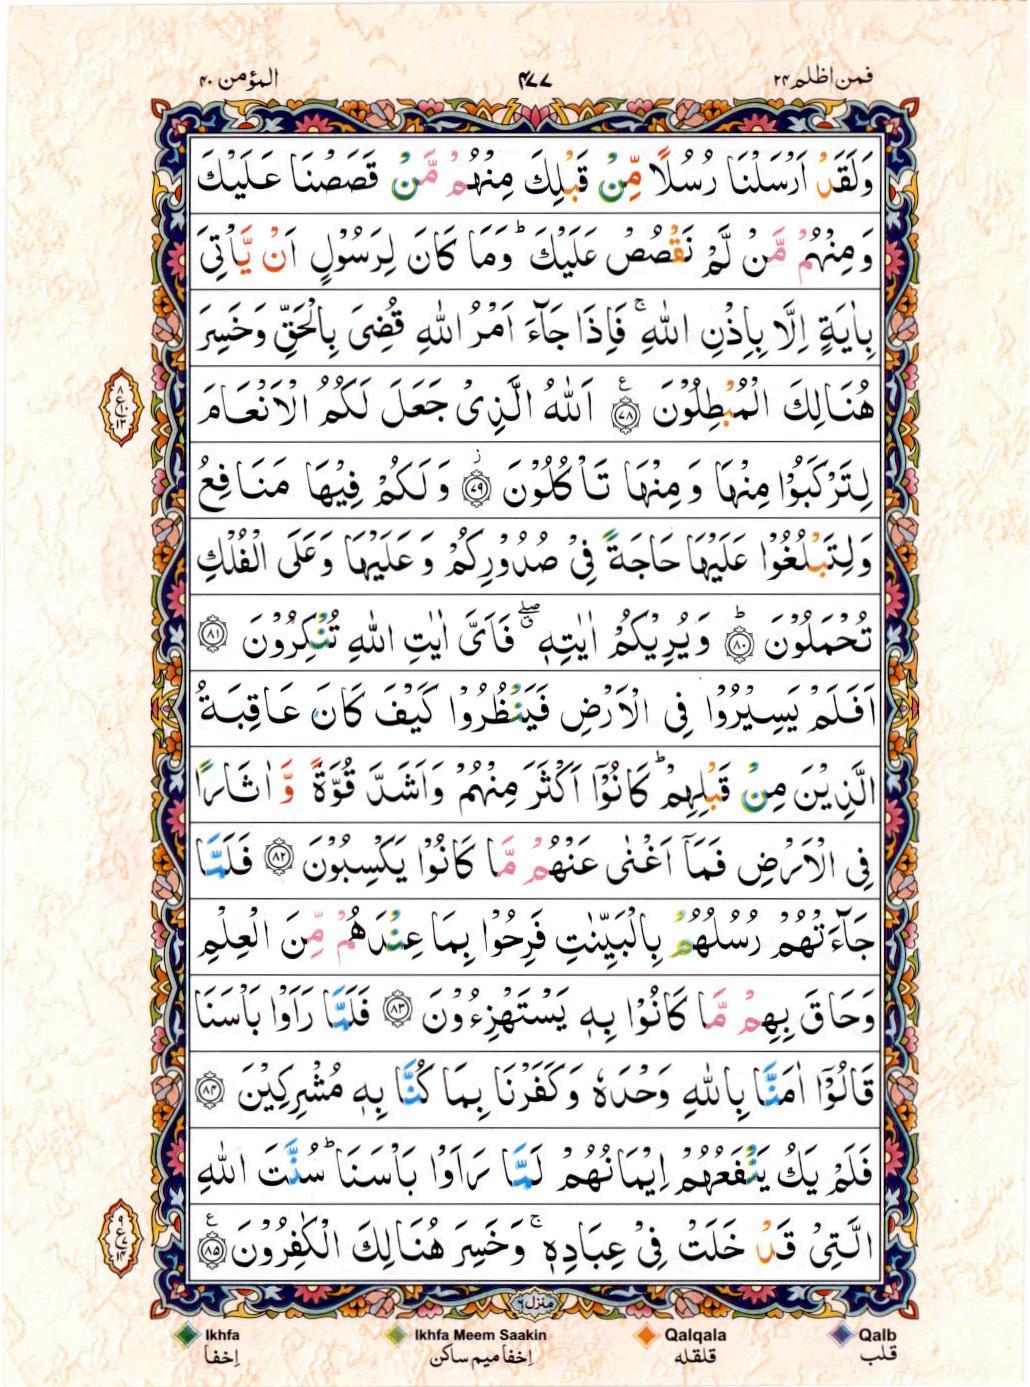 المؤمن ۴۰
۴۷۷
فمن اظلم ۲۴
وَلَقَدْ اَرْسَلْنَا رُسُلًا مِّنْ قَبْلِكَ مِنْهُمْ مَّنْ قَصَصْنَا عَلَيْكَ
وَمِنْهُمْ مَّنْ لَّمْ نَقْصُصْ عَلَيْكَ ؕ وَمَا كَانَ لِرَسُوْلٍ اَنْ يَّاْتِيَ
بِاٰيَةٍ اِلَّا بِاِذْنِ اللّٰهِ ۚ فَاِذَا جَآءَ اَمْرُ اللّٰهِ قُضِيَ بِالْحَقِّ وَخَسِرَ
هُنَالِكَ الْمُبْطِلُوْنَ ﴿۷۸﴾ اَللّٰهُ الَّذِيْ جَعَلَ لَكُمُ الْاَنْعَامَ
لِتَرْكَبُوْا مِنْهَا وَمِنْهَا تَاْكُلُوْنَ ﴿۷۹﴾ وَلَكُمْ فِيْهَا مَنَافِعُ
وَلِتَبْلُغُوْا عَلَيْهَا حَاجَةً فِيْ صُدُوْرِكُمْ وَعَلَيْهَا وَعَلَى الْفُلْكِ
تُحْمَلُوْنَ ﴿۸۰﴾ؕ وَيُرِيْكُمْ اٰيٰتِهٖ ۖ فَاَيَّ اٰيٰتِ اللّٰهِ تُنْكِرُوْنَ ﴿۸۱﴾
اَفَلَمْ يَسِيْرُوْا فِي الْاَرْضِ فَيَنْظُرُوْا كَيْفَ كَانَ عَاقِبَةُ
الَّذِيْنَ مِنْ قَبْلِهِمْ ؕ كَانُوْۤا اَكْثَرَ مِنْهُمْ وَاَشَدَّ قُوَّةً وَّاٰثَارًا
فِي الْاَرْضِ فَمَآ اَغْنٰى عَنْهُمْ مَّا كَانُوْا يَكْسِبُوْنَ ﴿۸۲﴾ فَلَمَّا
جَآءَتْهُمْ رُسُلُهُمْ بِالْبَيِّنٰتِ فَرِحُوْا بِمَا عِنْدَهُمْ مِّنَ الْعِلْمِ
وَحَاقَ بِهِمْ مَّا كَانُوْا بِهٖ يَسْتَهْزِءُوْنَ ﴿۸۳﴾ فَلَمَّا رَاَوْا بَاْسَنَا
قَالُوْۤا اٰمَنَّا بِاللّٰهِ وَحْدَهٗ وَكَفَرْنَا بِمَا كُنَّا بِهٖ مُشْرِكِيْنَ ﴿۸۴﴾
فَلَمْ يَكُ يَنْفَعُهُمْ اِيْمَانُهُمْ لَمَّا رَاَوْا بَاْسَنَا ؕ سُنَّتَ اللّٰهِ
الَّتِيْ قَدْ خَلَتْ فِيْ عِبَادِهٖ ۚ وَخَسِرَ هُنَالِكَ الْكٰفِرُوْنَ ﴿۸۵﴾
۸ ع ۱۰ ۱۳
۹ ع ۷ ۱۴
منزل ۶
Ikhfa اِخفا
Ikhfa Meem Saakin اِخفا میم ساکن
Qalqala قلقلہ
Qalb قلب